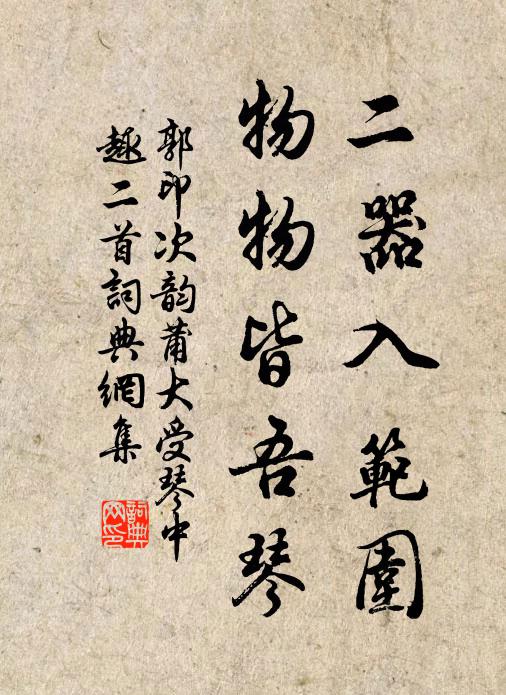 二器入範圍
物物皆吾琴
郭印次韵莆大受琴中
趣二首詞典網集
詞典网印